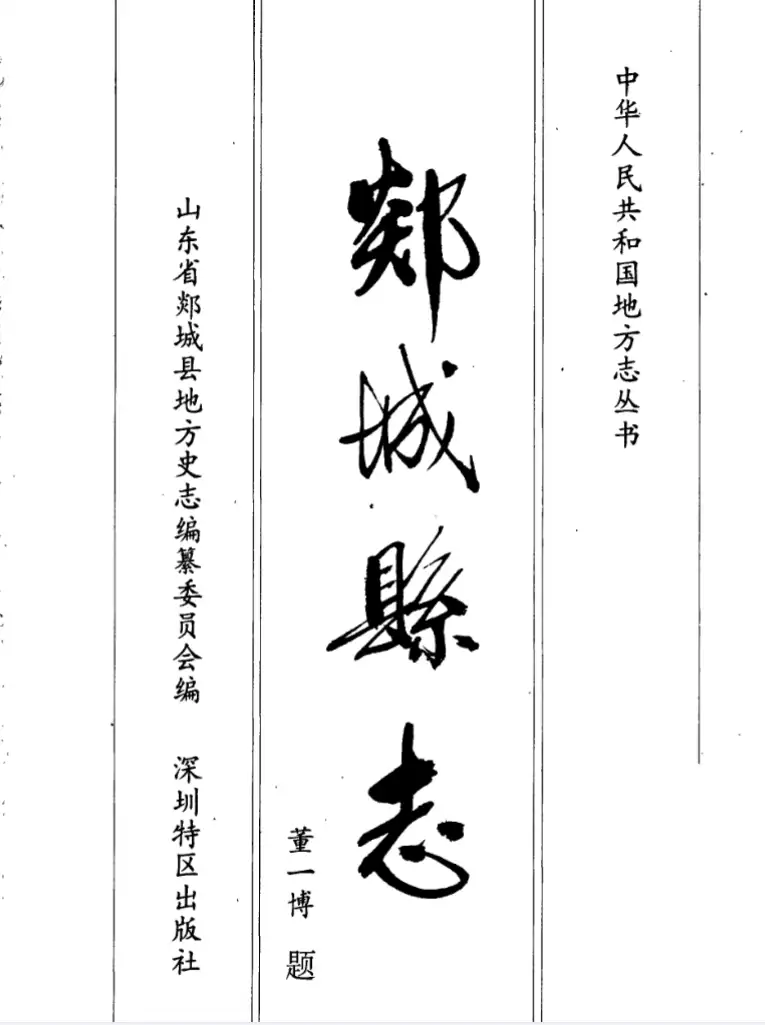 中华人民共和国地方志丛书
郯城縣志
董一博 题
山东省郯城县地方史志编纂委员会编 深圳特区出版社